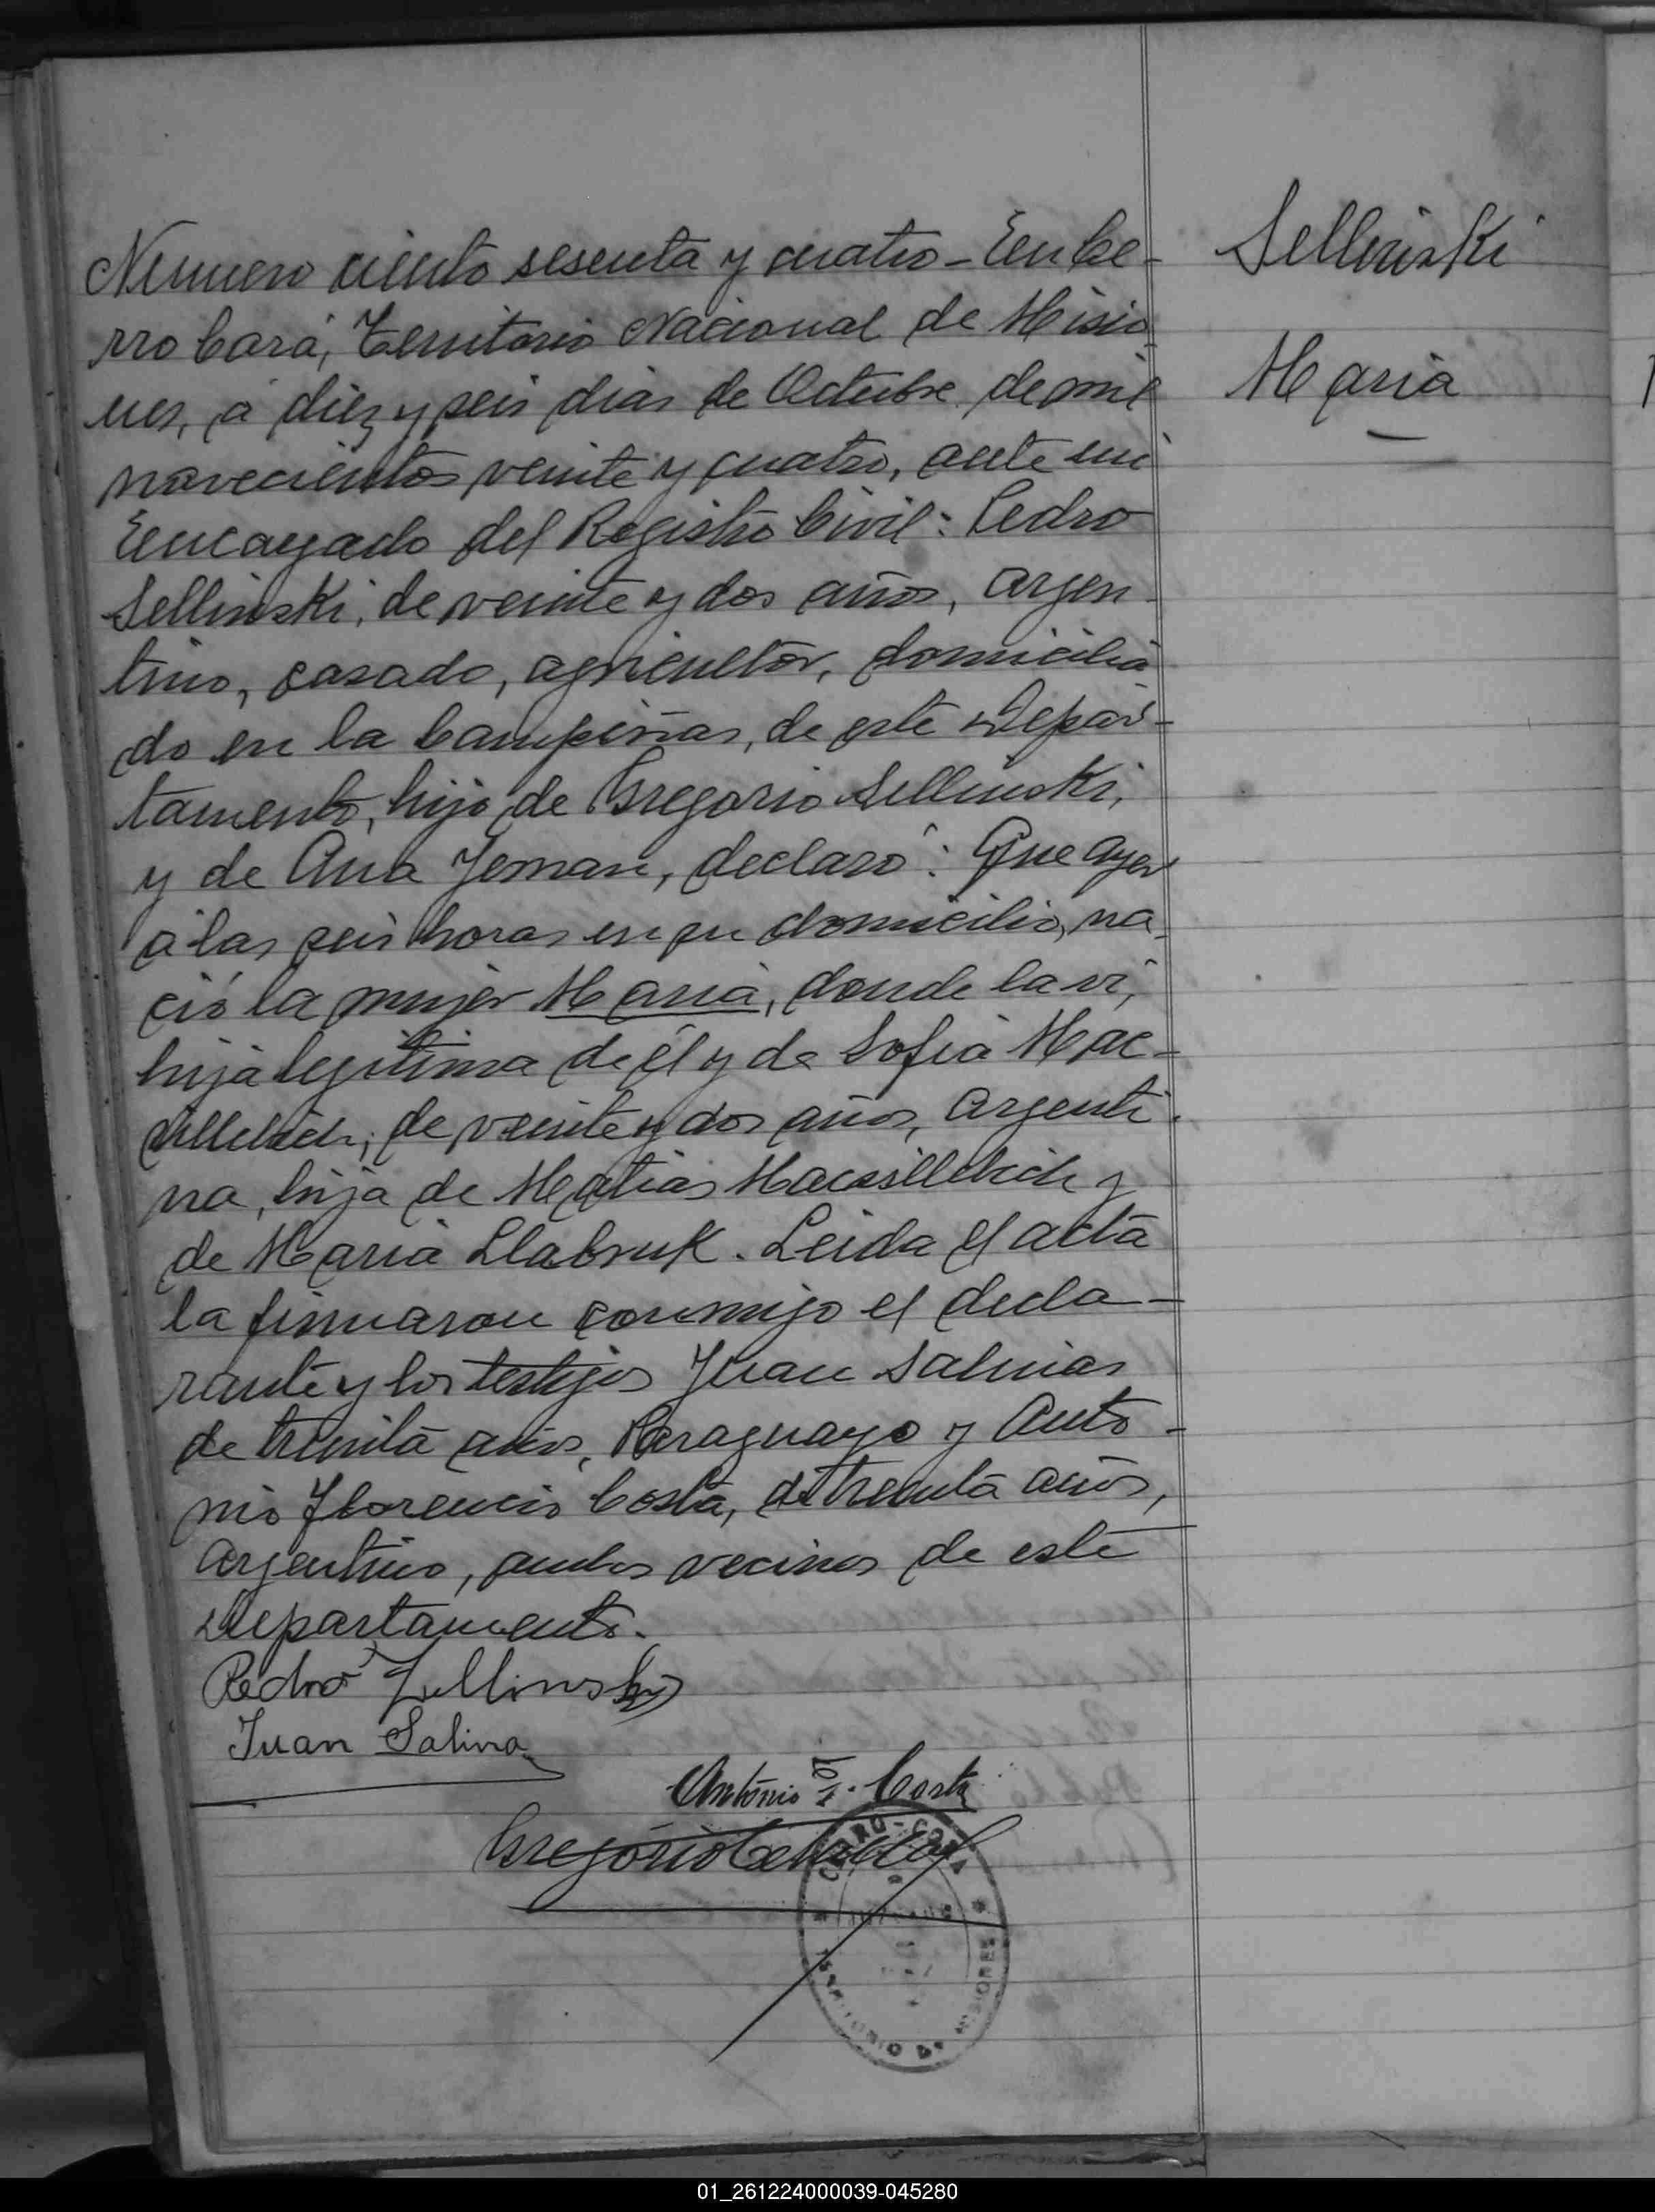 Sellinski
Maria
Numero ciento sesenta y cuatro - En Ce-
rro Corá, Territorio Nacional de Misio-
nes, á diez y seis dias de Octubre de mil
novecientos veinte y cuatro, ante mi
Encargado del Registro Civil: Pedro
Sellinski, de veinte y dos años, argen-
tino, casado, agricultor, domicilia-
do en la Campiñas, de este Depar-
tamento, hijo de Gregorio Sellinski,
y de Ana Jeman, declaró: Que ayer
á las seis horas en su domicilio, na-
ció la mujer Maria, donde la vi,
hija legitima de él y de Sofia Mac-
de veinte y dos años, argenti-
na, hija de Matias y
de Maria Llabruk. Leida el acta
la firmaron conmigo el decla-
rante y los testigos Juan Salinas
de treinta años, Paraguayo y Anto-
nio Florencio Costa, de treinta años,
argentino, ambos vecinos de este
Departamento.
Pedro Zellinsky
Juan Salina
Antonio F. Costa
Gregorio
CERRO-CORA
TERRITORIO DE MISIONES
01_261224000039-045280